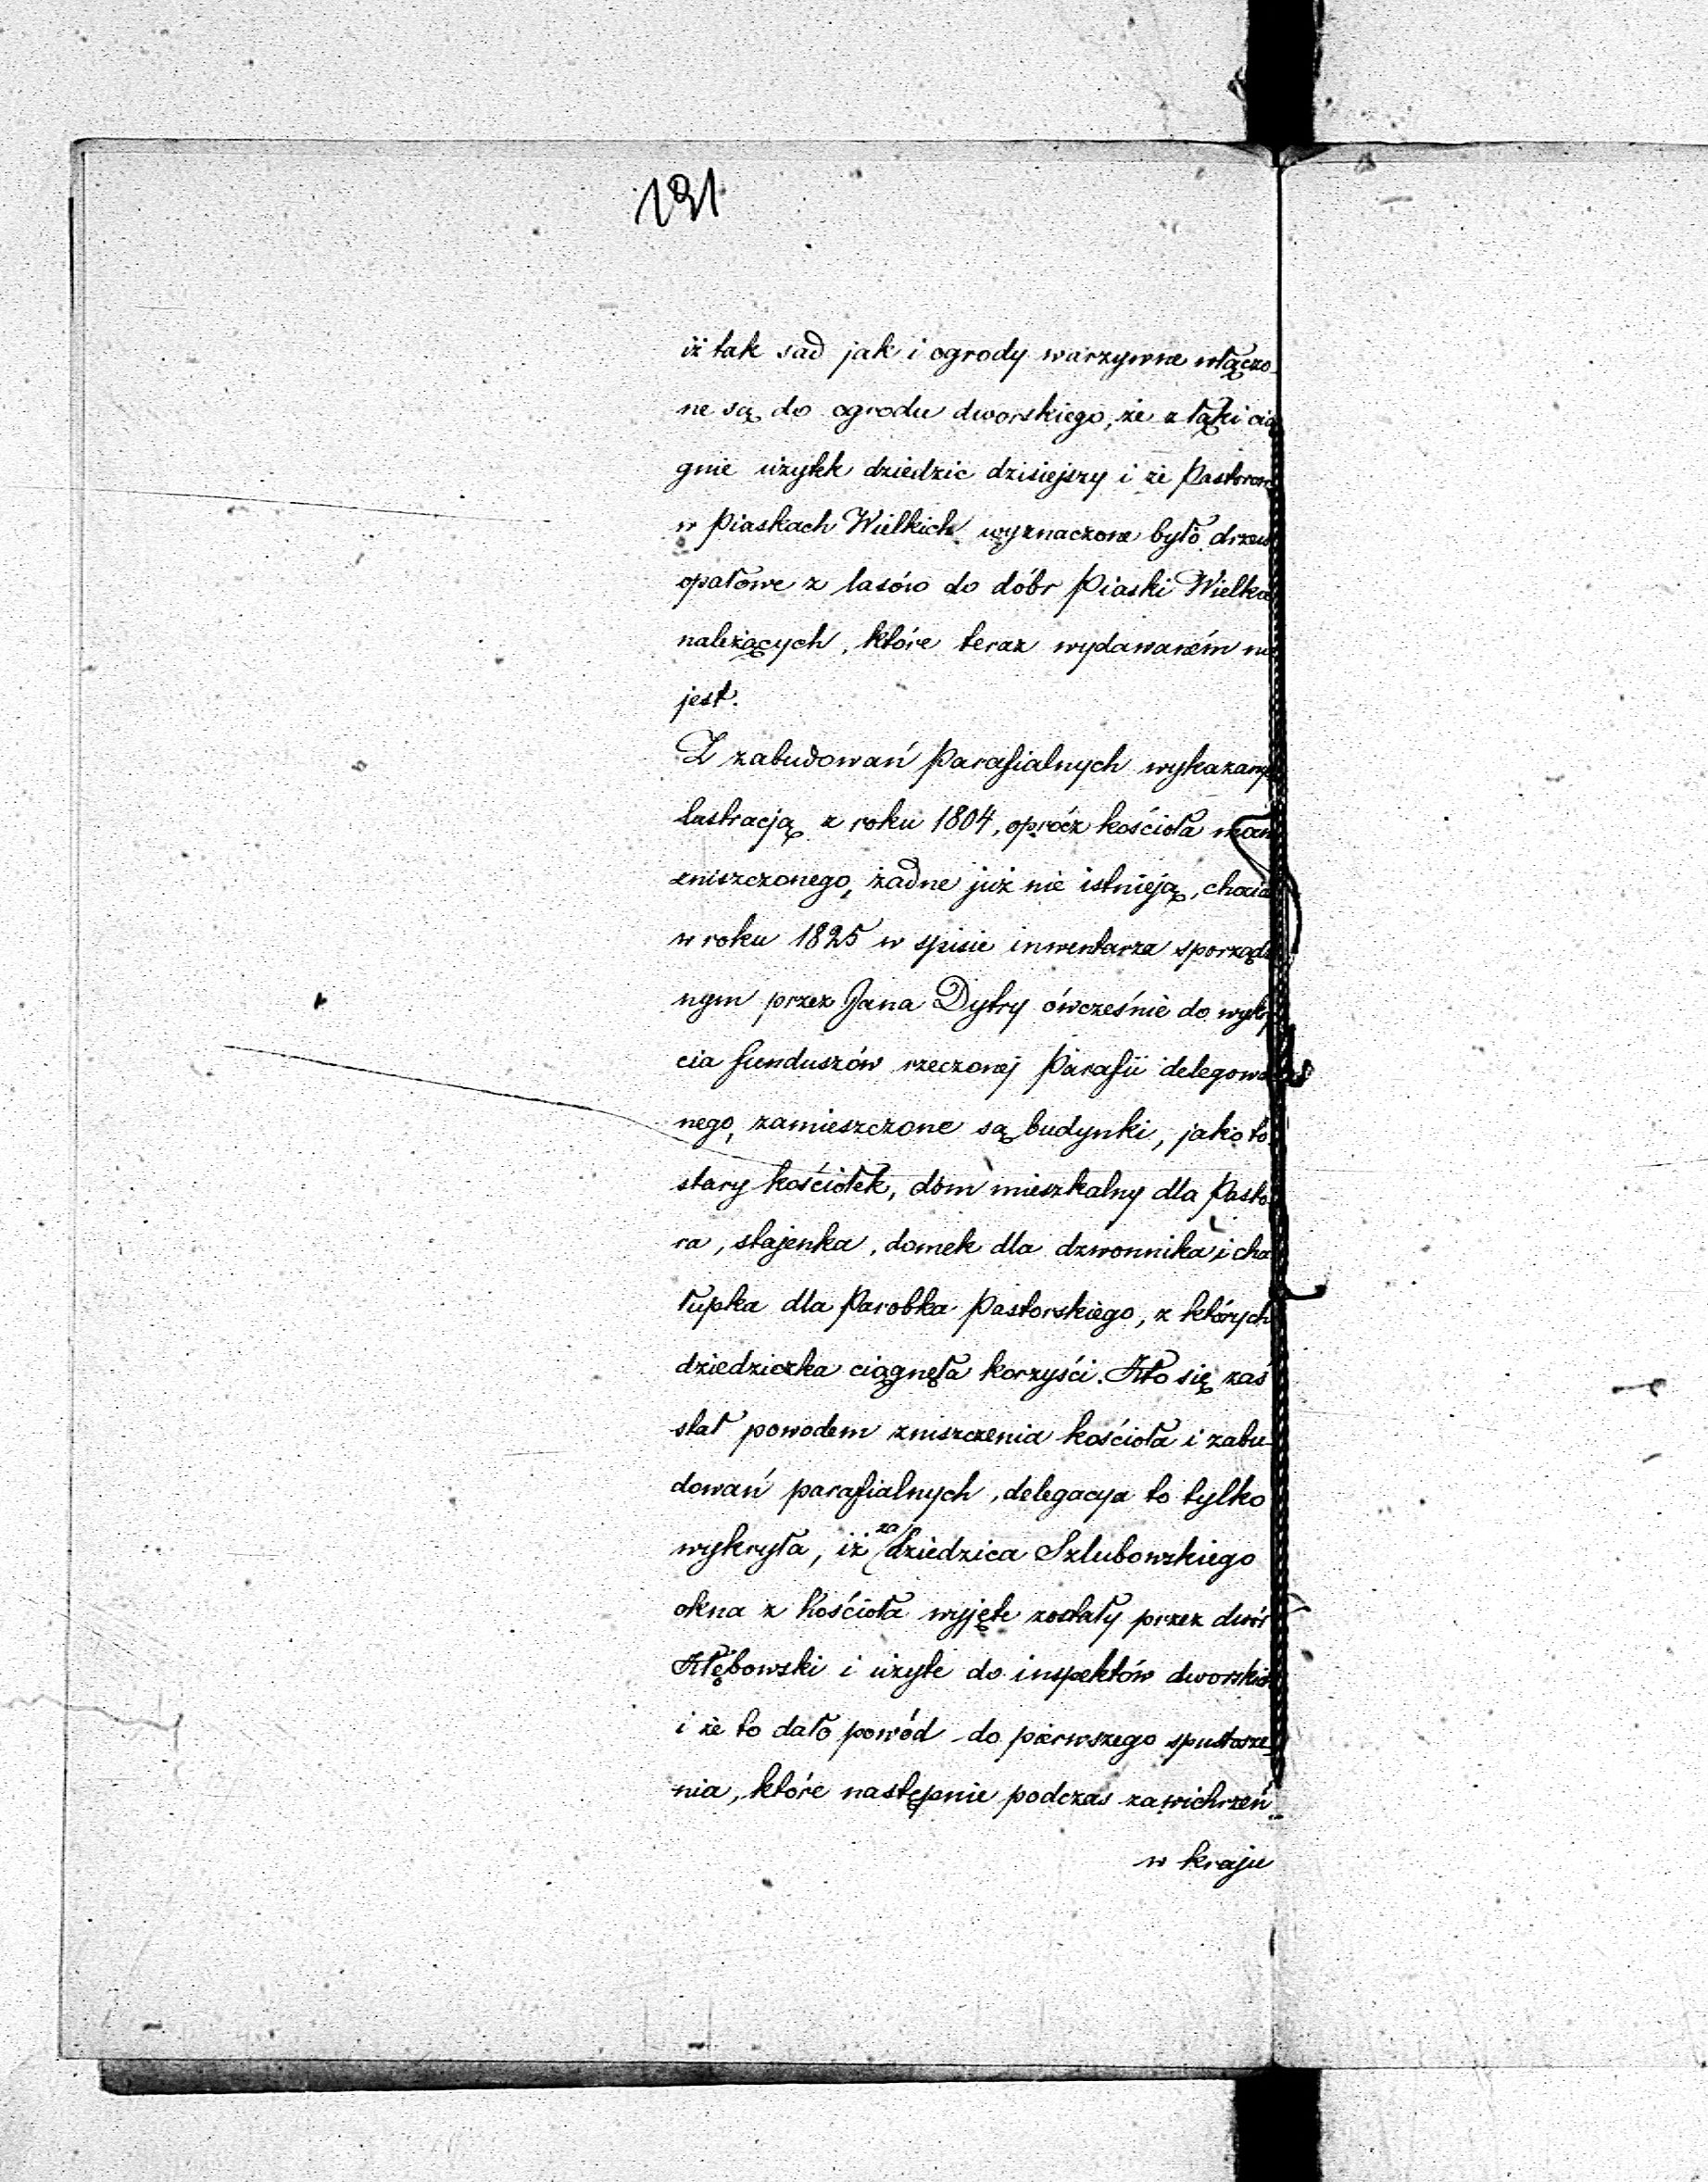 191
iż tak sad jak i ogrody warzywne włączo-
ne są do ogrodu dworskiego, że z łąki cią
gnie użytek dziedzic dzisiejszy i że Pastorom
w Piaskach Wielkich wyznaczone było drzewo
opałowe z lasów do dóbr Piaski Wielkie
należących, które teraz wydawaném nie
jest.
Z zabudowań Parafialnych wykazanych
lustracją z roku 1804, oprócz kościoła
zniszczonego, żadne już nie istnieją, chociaż
w roku 1825 w spisie inwentarza sporządzo
nym przez Jana Dytry ówcześnie do wykry
cia funduszów rzeczonej Parafii delegowa
nego, zamieszczone są budynki, jako to
stary kościołek, dom mieszkalny dla Pasto
ra, stajenka, domek dla dzwonnika i cha
łupka dla Parobka Pastorskiego, z których
dziedziczka ciągnęła korzyści. Kto się zaś
stał powodem zniszczenia kościoła i zabu-
dowań parafialnych, delegacya to tylko
wykryła, iż za dziedzica Szlubowskiego
okna z kościoła wyjęte zostały przez dwór
Kłębowski i użyte do inspektów dworskich
i że to dało powód do pierwszego spustosze-
nia, które następnie podczas zawichrzeń
w kraju